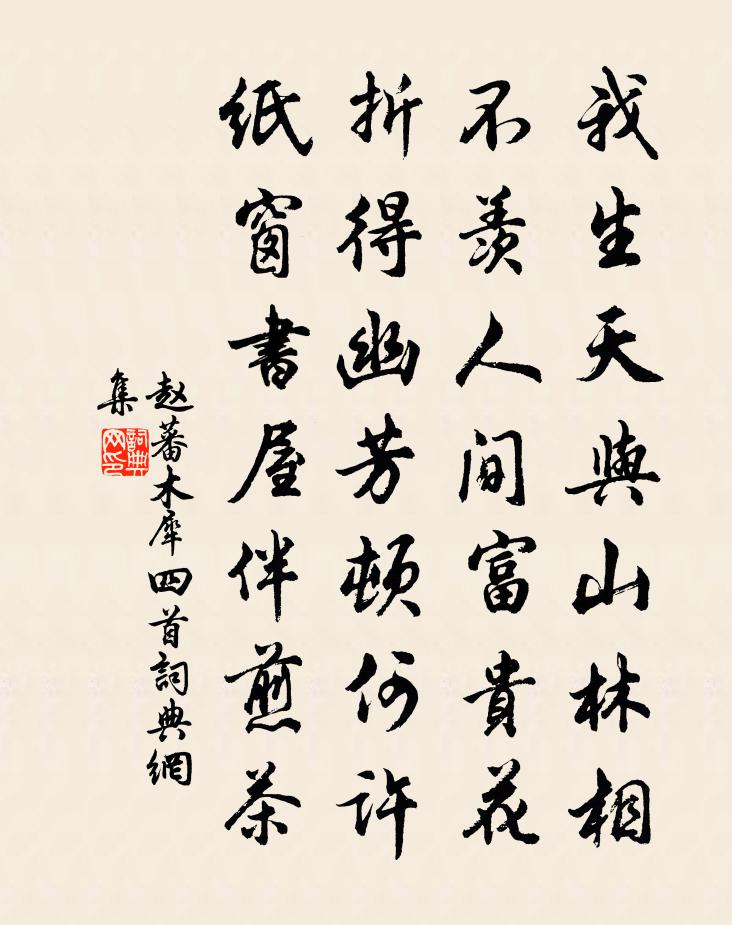 我生天與山林相
不羨人間富貴花
折得幽芳頓何許
紙窗書屋伴煎茶
赵蕃木犀四首詞典網
集
詞典
网印